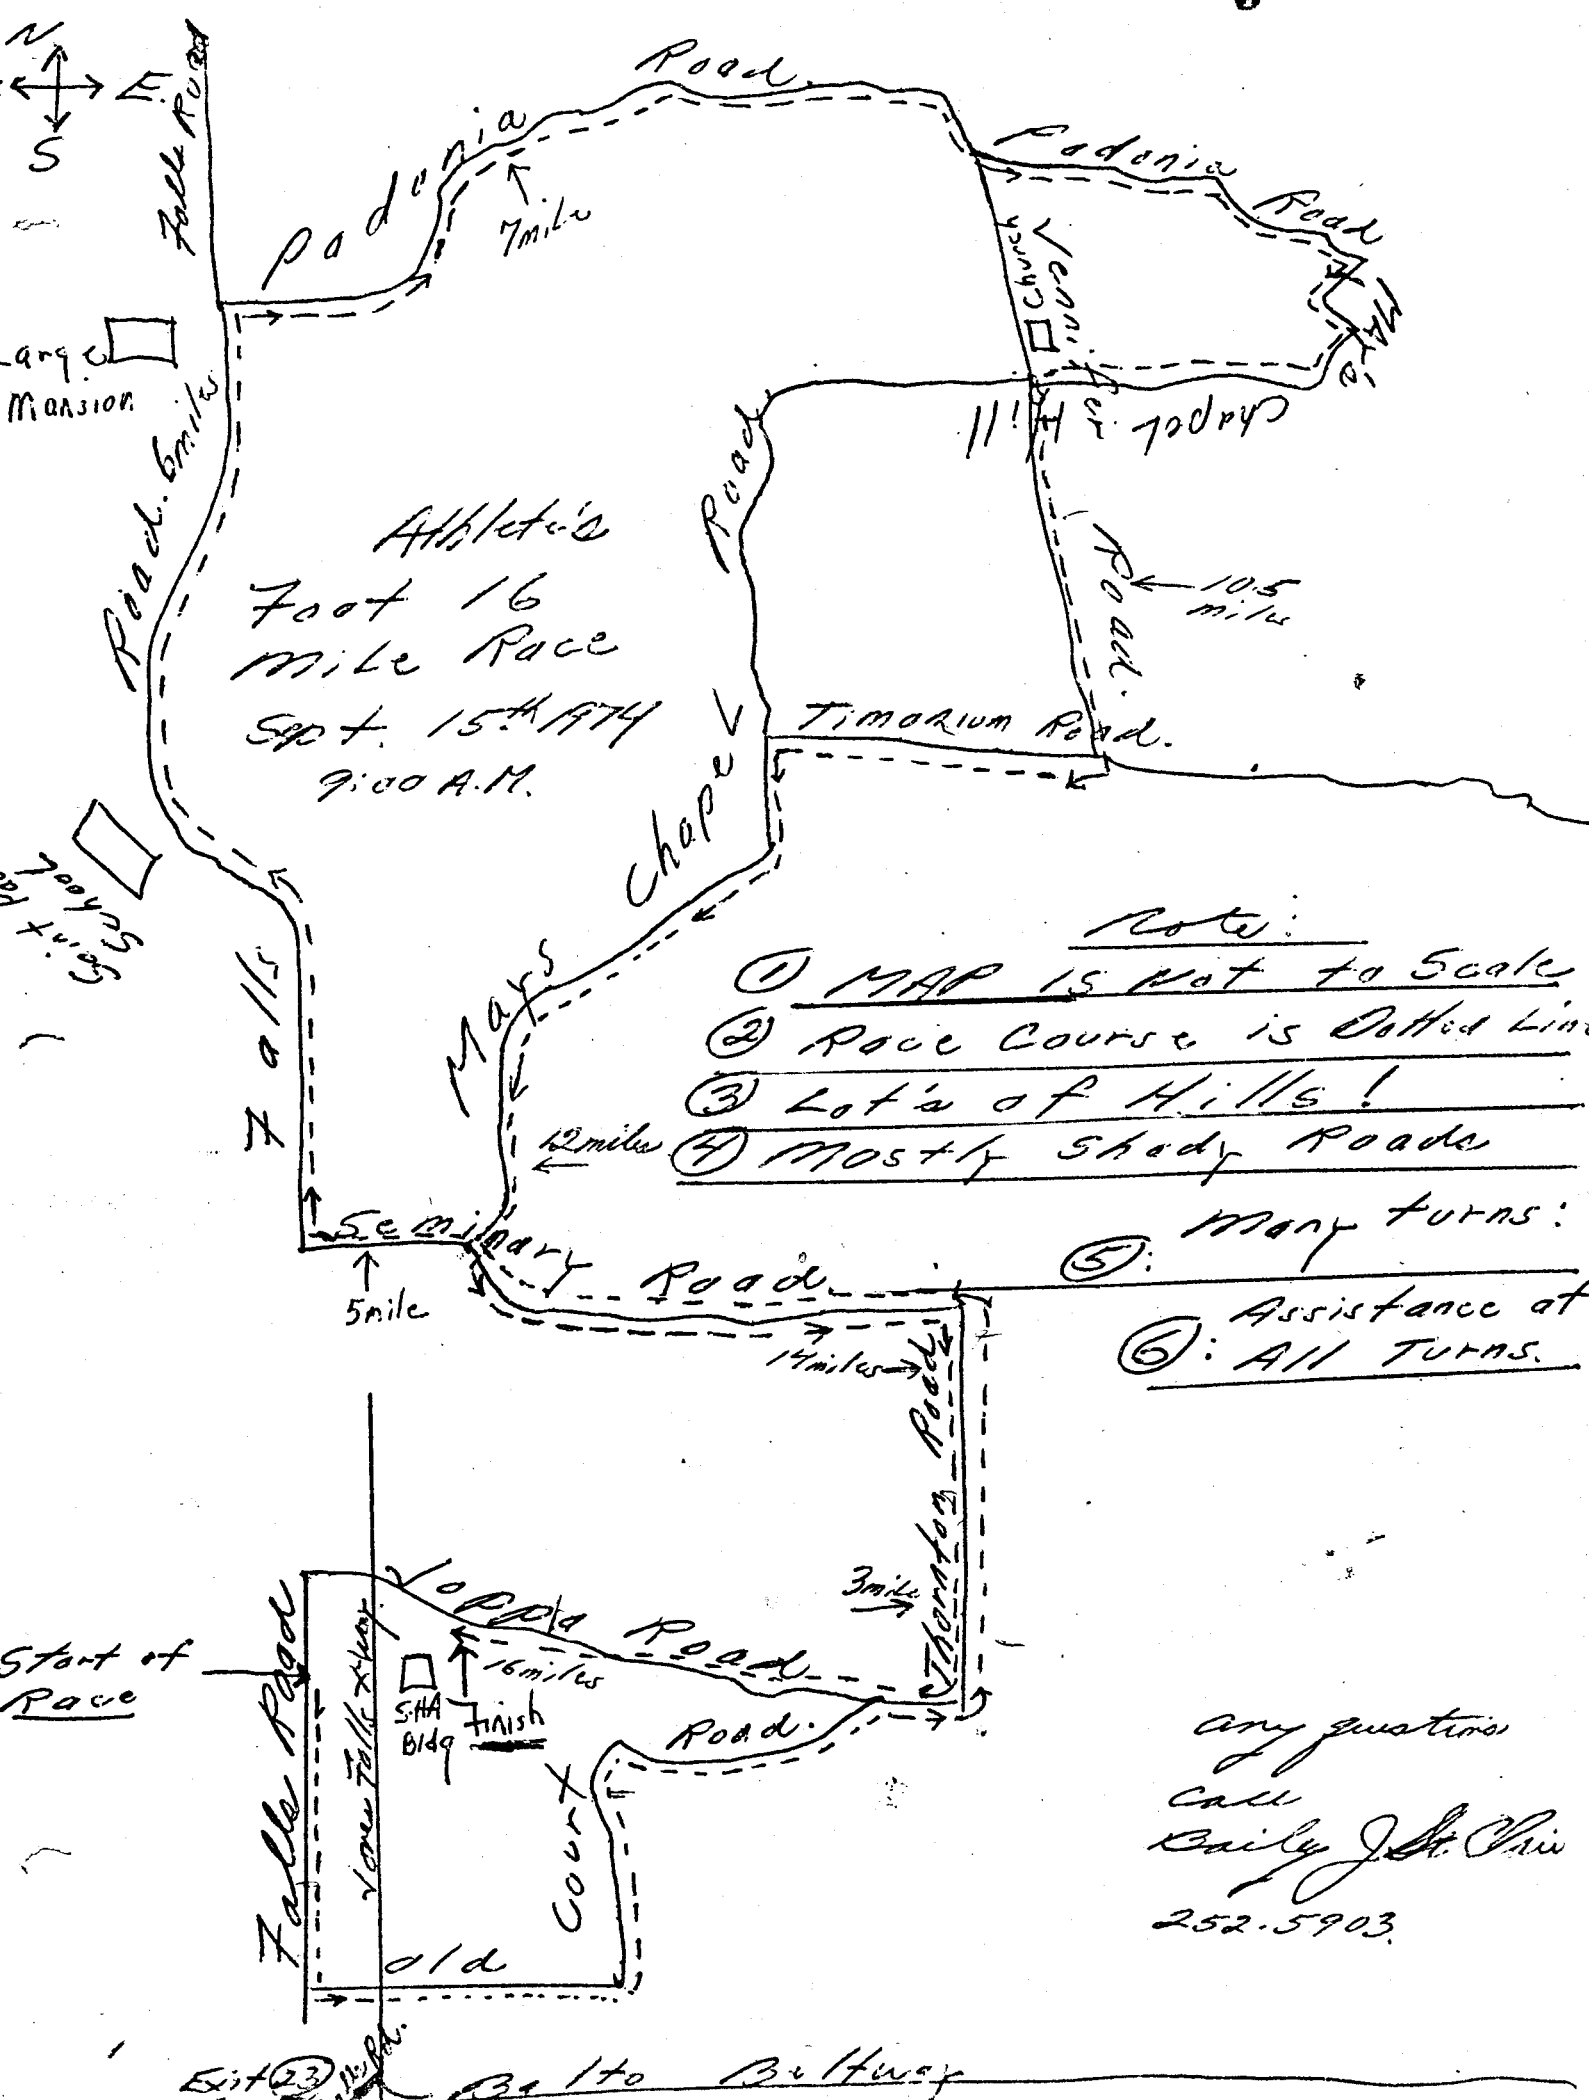 N
E.
S
Falls Road
Padonia Road
7 mile
Padonia Road
Mare
Church
Jennifer Road.
Chapel Hill
Large
Mansion
Road. 6 miles
Falls
Athlete's
Foot 16
Mile Race
Sept. 15th 1974
9:00 A.M.
10.5
miles
Timonium Road.
Mays Chapel Road
Saint
School
Note:
① MAP is Not to Scale
② Race Course is Dotted Line
③ Lot's of Hills!
④ Mostly Shady Roads
⑤: Many turns:
⑥: Assistance at
All Turns.
12 miles
Seminary Road
5 mile
14 miles
Thornton Road
3 mile
Joppa Road
16 miles
Start of
Race
Falls Road
Jones Falls X-Way.
SHA
Bldg
Finish
Old Court Road.
any questions
Call
252.5903.
Exit 23
Balto Beltway